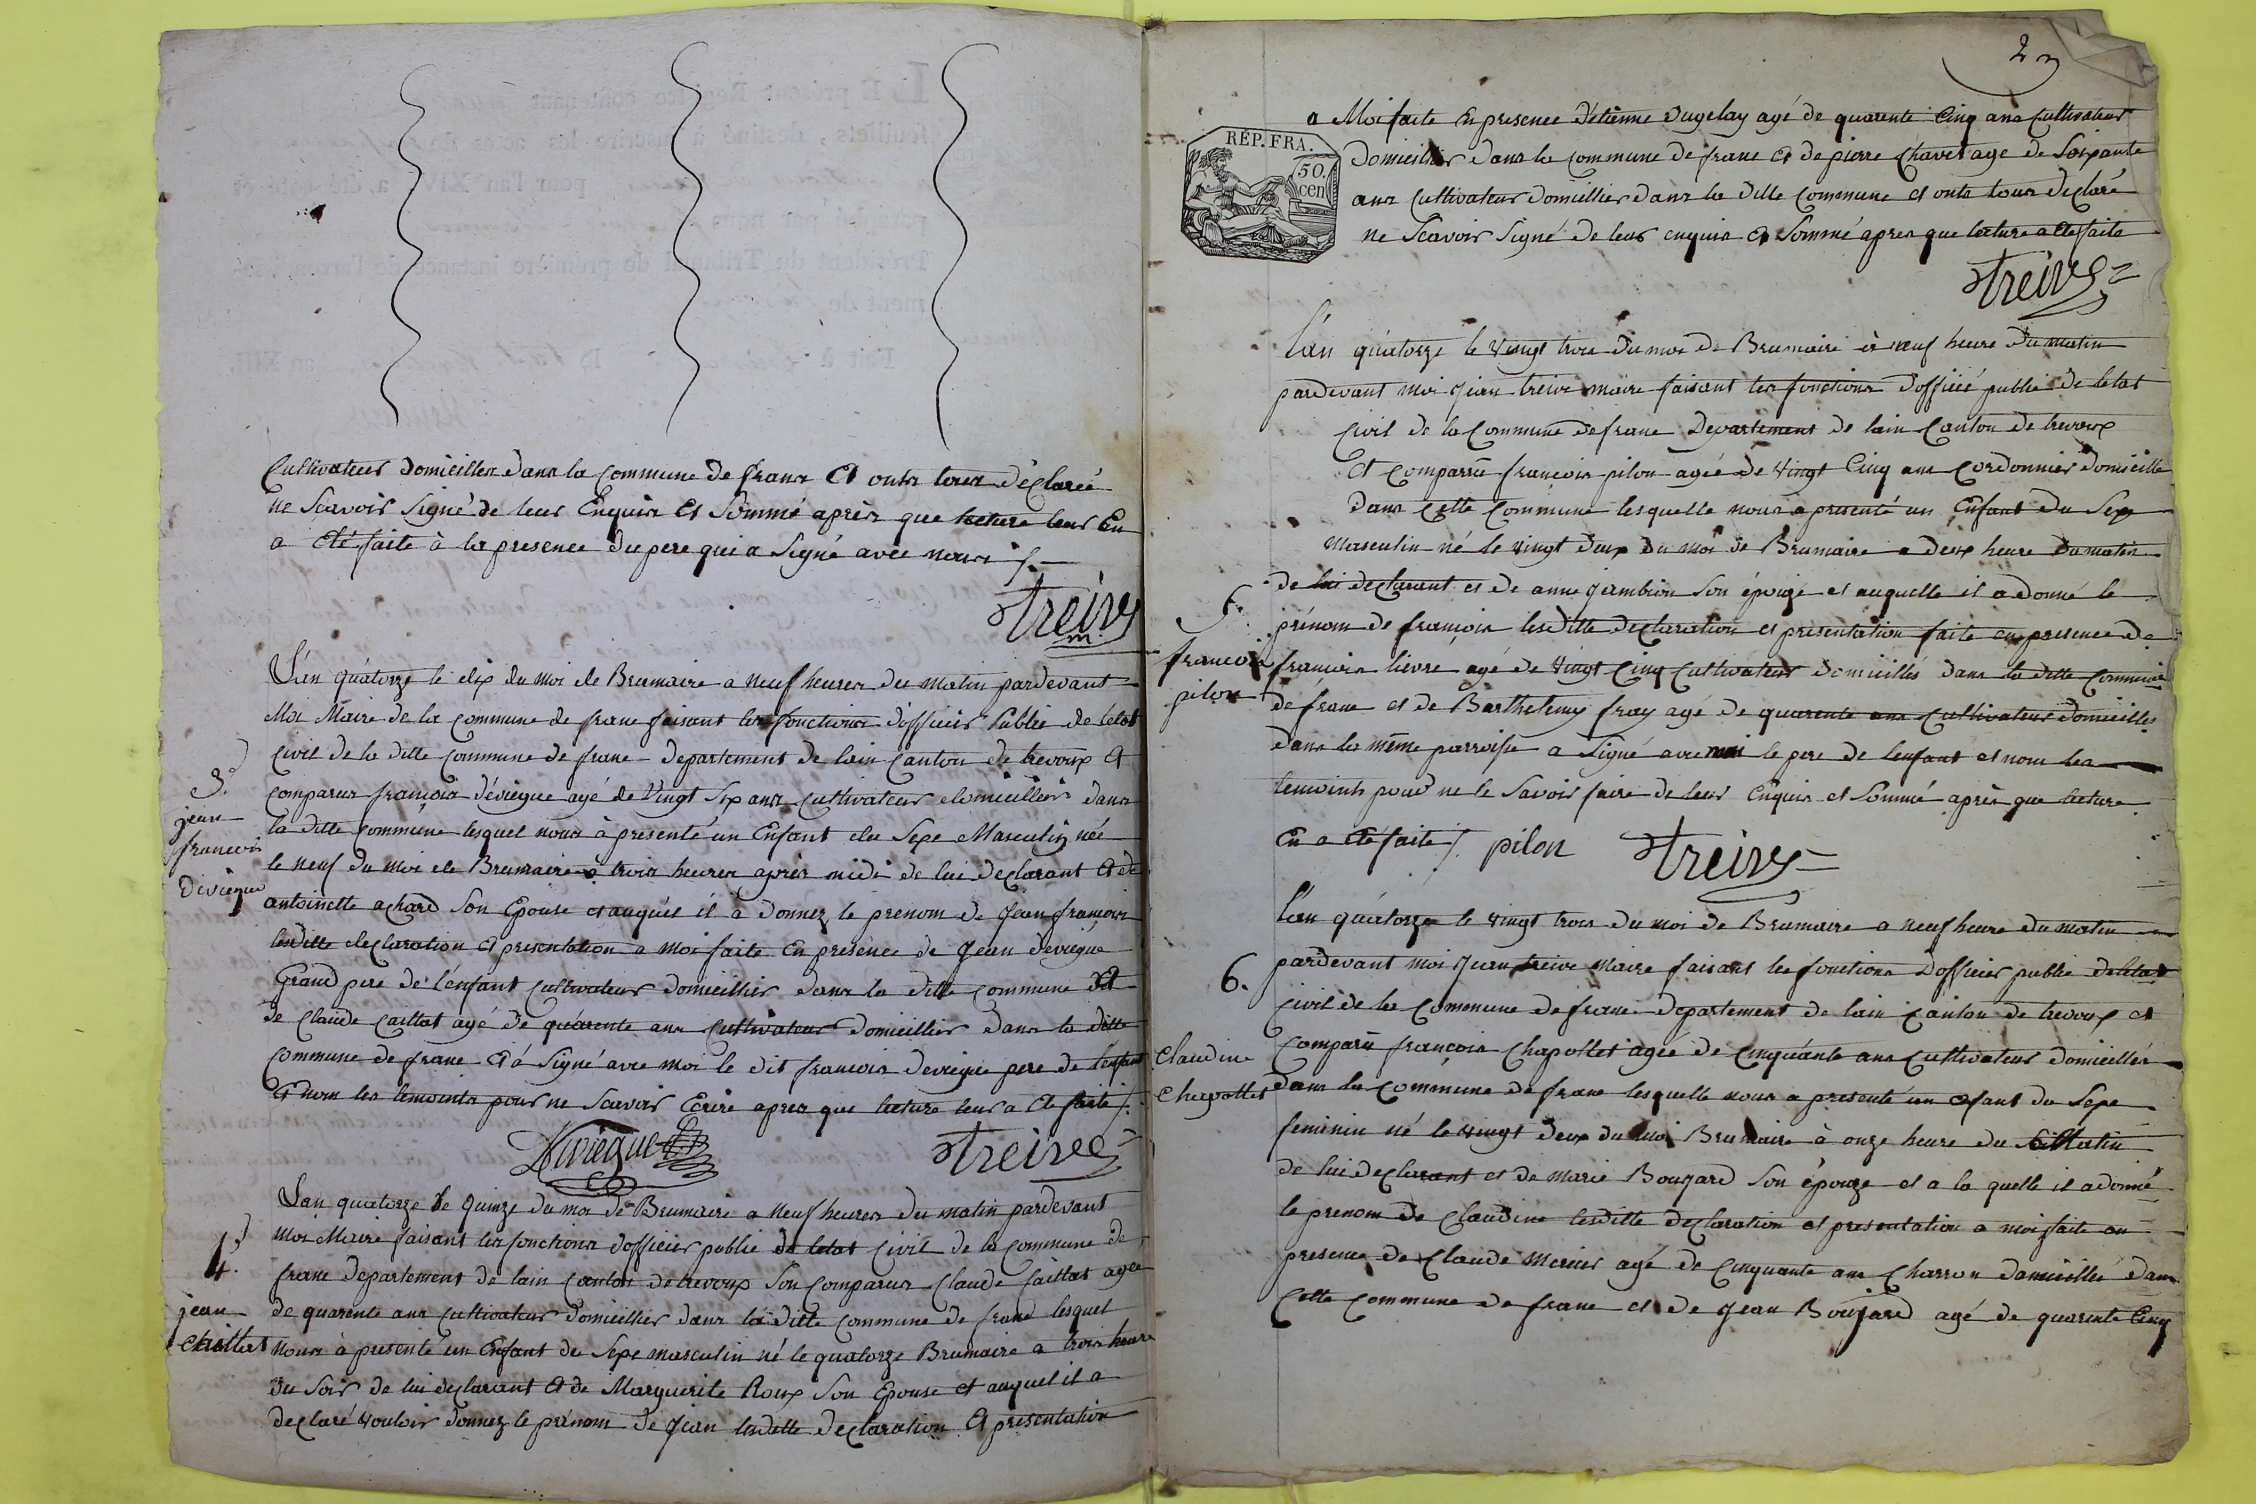 Cultivateur domicillier dans la commune de frans Et onts tous déclareé
ne Scavoir Signé de leur Enquis Et Sommé après que lecture leur En
a Eté faite à la presence du pere qui a Signé avec nous /.
Treive
m.
L'an quatorze le dix du moi de Brumaire a neuf heures du matin pardevant
Moi Maire de la commune de frane faisant les fonctions d'officier Public de letat
civil de la ditte commune de frane departement de lain canton de trevoux Et
3.
comparus françois déviegue agé de Vingt Six ans cultivateur domicillier dans
jean
francois
Deviegue
la ditte commune lesquel nous à presenté un Enfant du Sexe Masculin née
le neuf du moi de Brumaire a trois heures après midi de lui declarant Et de
antoinette achard Son Epouse et auquel il a donnez le prenom de Jean francois
lesditte declaration Et presentation a moi faite En presence de Jean deviegue
Grand pere de l'enfant cultivateur domicillier dans la ditte commune Et
de Claude Caillat agé de quarente ans cultivateur domicillier dans la ditte
commune de frane Et à Signé avec moi le dit francois deviegue pere de lenfant
Et nom les temoints pour ne Scavoir Ecrire apres que lecture leur a Eté faite /.
Diviegue Treive
L'an quatorze le quinze du moi de Brumaire a neuf heures du matin pardevant
4.
moi Maire faisant les fonctions dofficier public de letat civil de la commune de
frane departement de lain canton de trevoux Son comparus Claude Caillat agée
jean
Caillat
de quarente ans cultivateur domicillier dans la ditte commune de frane lesquel
nous à presenté un Enfant du Sexe masculin né le quatorze Brumaire a trois heure
du Soir de lui declarant Et de Marguerite Roux Son Epouse et auquel il a
declaré vouloir donnez le prénom de Jean lesdette declaration Et presentation
2
a Moi faite En presence d'etienne dugelay agé de quarente Cinq ans Cultivateur
RÉP. FRA.
50.
cen
domicillier dans la commune de frane Et de pierre Chavet age de Soixante
ans cultivateur domicillier dans la ditte commune et onts tous declaré
ne Scavoir Signé de leur enquis Et Sommé apres que lecture a Eté faite
Treive
L'an quatorze le vingt trois du moi de Brumaire à neuf heure du matin
pardevant moi Jean treive maire faisant les fonctions dofficié public de letat
civil de la Commune de frane Departement de lain Canton de trevoux
Et comparru francois pilon agée de vingt Cinq ans Cordonnier domicillé
dans cette commune lesquelle nous a presenté un Enfant du Sexe
masculin né le vingt deux du moi de Brumaire a deux heure du matin
5.
francois
pilon
de lui declarant et de anne jambion Son épouze et auquelle il a donné le
prénom de francois lesditte declaration et presentation faite en presence de
francois lievre agé de Vingt Cinq Cultivateur domicillés dans la ditte commune
de frane et de Barthelemy fray agé de quarente ans Cultivateur domicilles
dans la même parroisse a Signé avec moi le pere de lenfant et nom les
temoints pour ne le Savoir faire de leur Enquis et Sommé après que lecture
En a Eté faite /. pilon Treive
L'an quatorze le vingt trois du moi de Brumaire a neuf heure du matin
pardevant moi Jean treive Maire faisant les fonctions Dofficier public de letat
6.
civil de la Commune de frane departement de lain canton de trevoux et
Claudine
Chapottet
comparû francois Chapottet agée de cinquante ans cultivateur domicillér
dans la commune de frane lesquelle nous a presenté un enfant du Sexe
feminin né le vingt deux du moi Brumaire à onze heure du Matin
de lui declarant et de marie Boujard Son épouze et a la quelle il a donné
le prenom de Claudine lesditte declaration et presentation a moi faite en
presence de Claude Mercier agé de Cinquante ans Charron domicillé dans
Cette commune de frane et de Jean Boujard agé de quarente Cinq